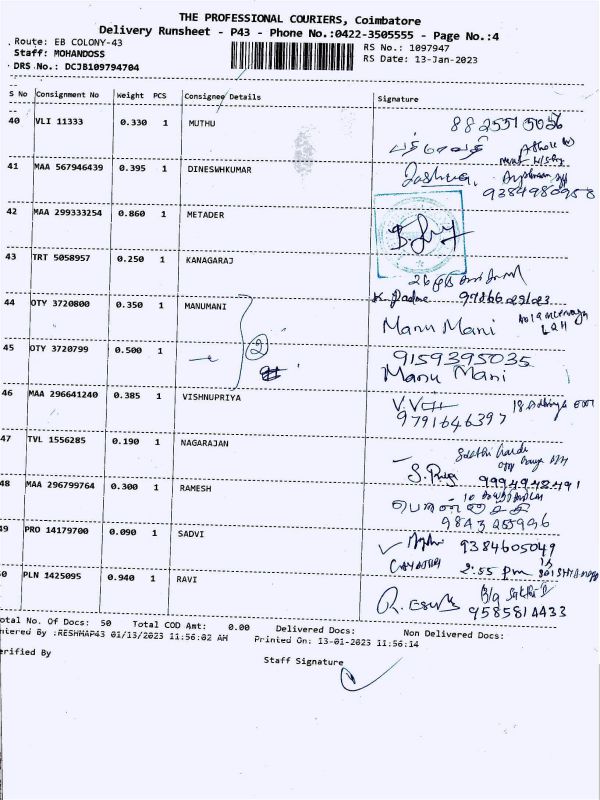 THE PROFESSIONAL COURIERS, Coimbatore
Delivery Runsheet - P43 - Phone No.:0422-3505555 - Page No.:4
Route: EB COLONY-43 RS No.: 1097947
Staff: MOHANDOSS RS Date: 13-Jan-2023
DRS No.: DCJB109794704
S No Consignment No Weight PCS Consignee Details Signature
40 VLI 11333 0.330 1 MUTHU 8825515056
41 MAA 567946439 0.395 1 DINESWHKUMAR
9384980958
42 METADER MAA 299333254 0.860 1
43 TRT 5058957 0.250 1 KANAGARAJ
44 OTY 3720800 0.350 1 MANUMANI Manu Mani
2
45 OTY 3720799 0.500 1 9159395035
Manu Mani
46 MAA 296641240 0.385 1 VISHNUPRIYA
9791646397
47 TVL 1556285 0.190 1 NAGARAJAN
9994948491
48 MAA 296799764 0.300 1 RAMESH
9843255996
49 PRO 14179700 0.090 1 SADVI 9384605049
2:55 pm
50 PLN 1425095 0.940 1 RAVI
9585814433
otal No. Of Docs: 50 Total COD Amt: 0.00 Delivered Docs: Non Delivered Docs:
ntered By :RESHMAP43 01/13/2023 11:56:02 AM Printed On: 13-01-2023 11:56:14
erified By
Staff Signature